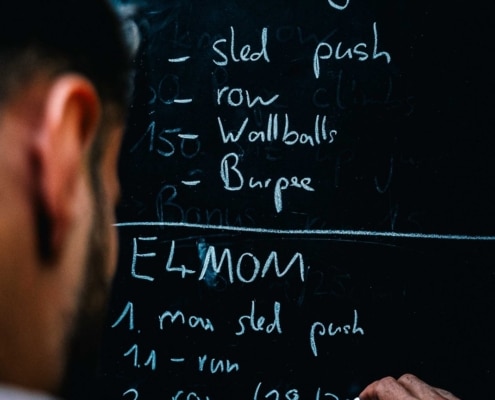 - sled push
- row
- Wallballs
- Burpee
E4MOM
1. max sled push
1.1 - run
2. row